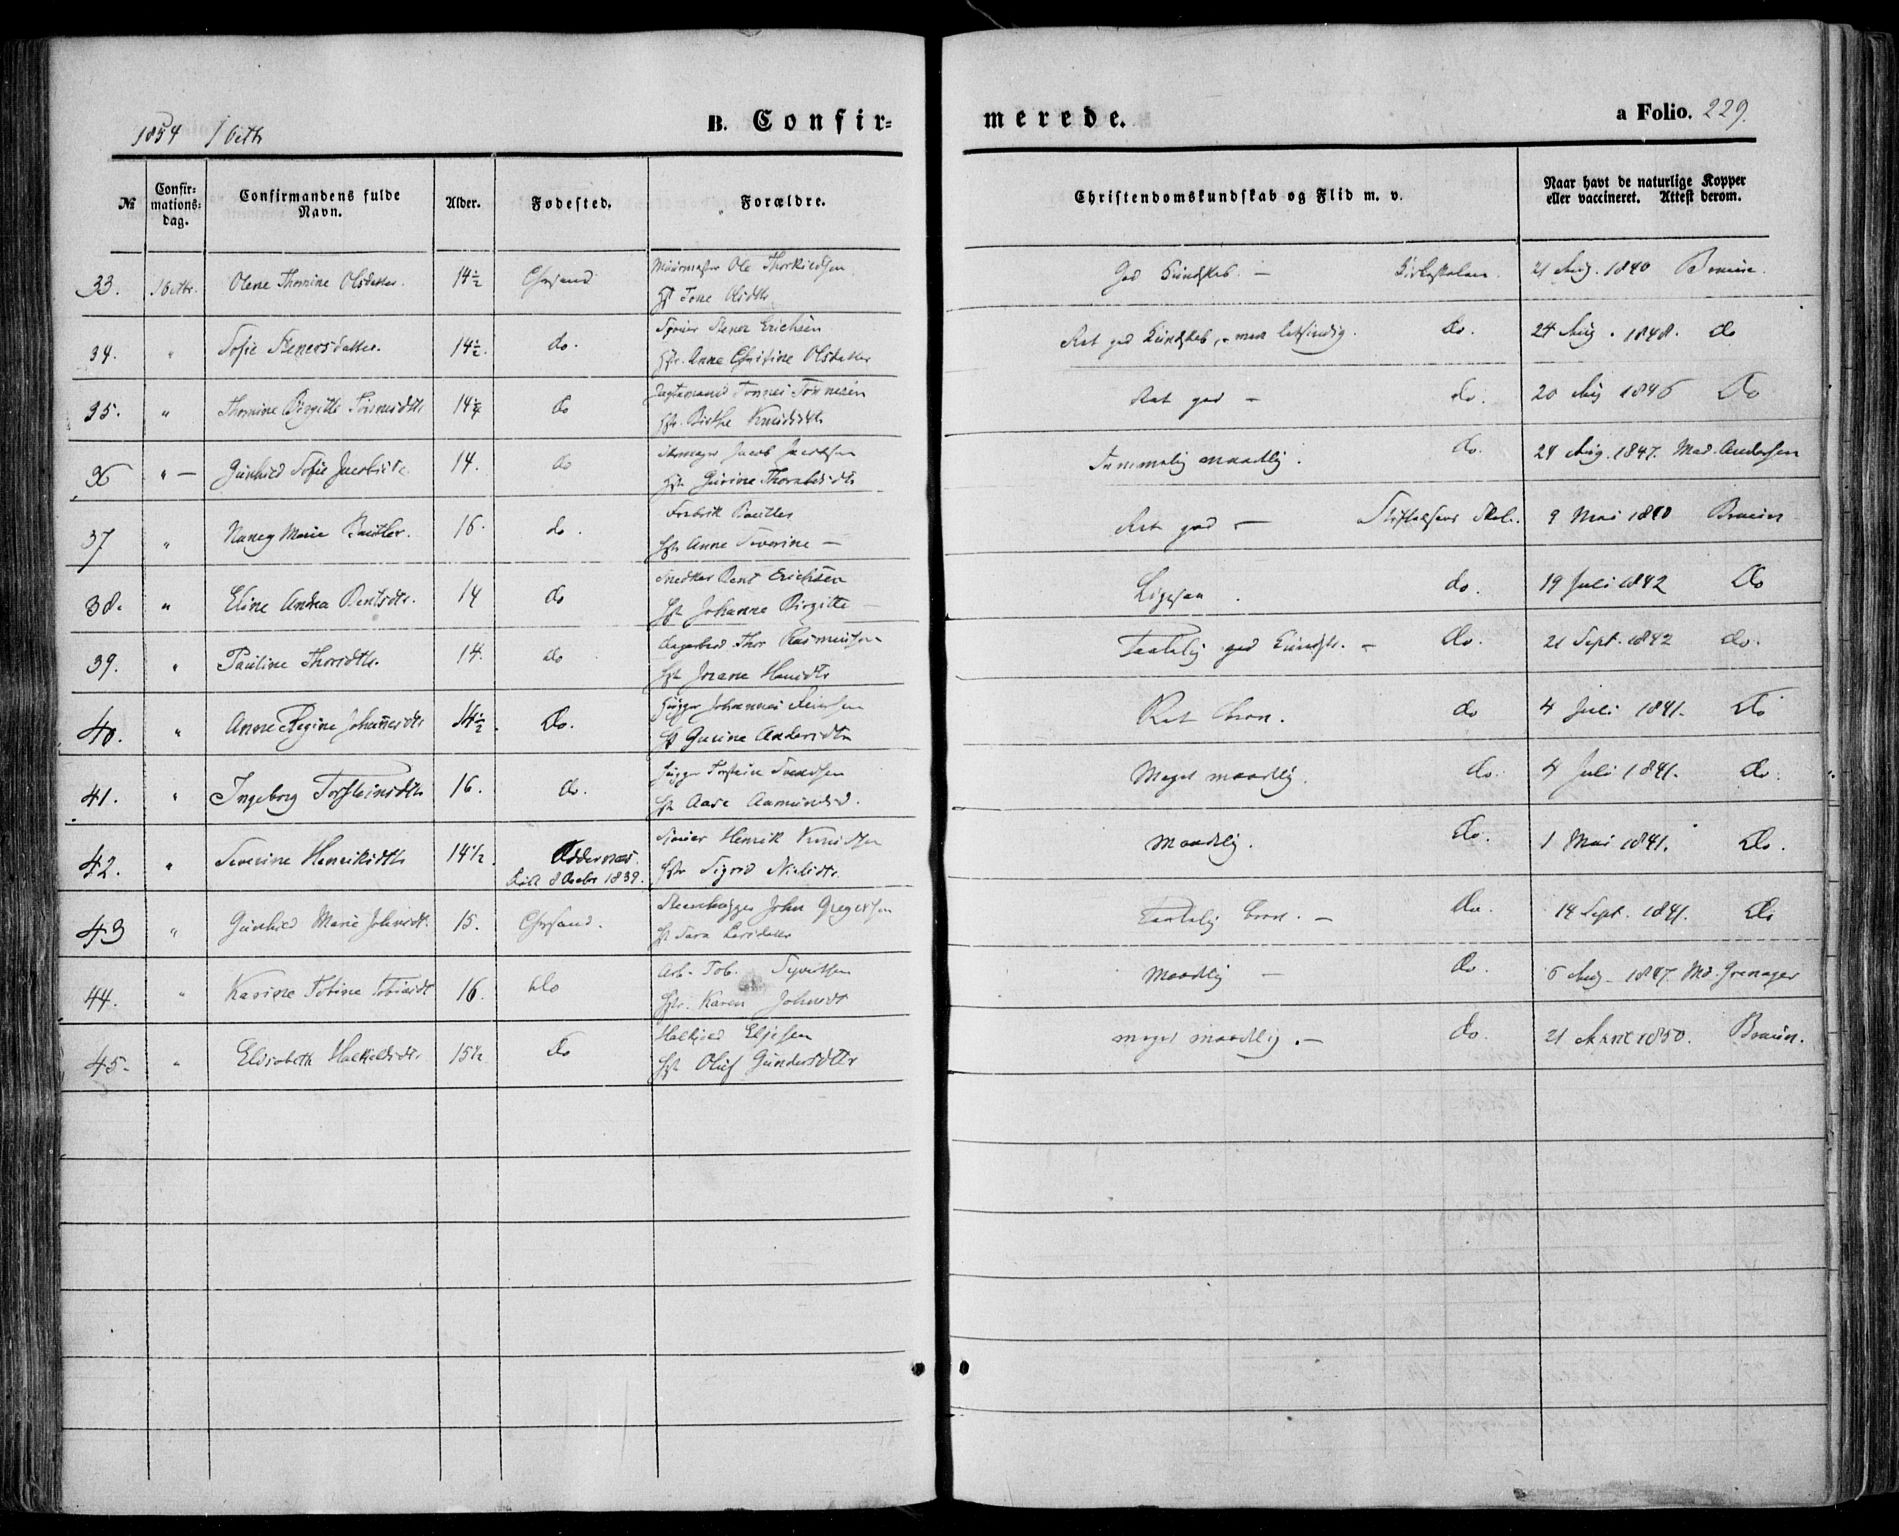 1854 1 Octb
B. Confir=
merede.
a Folio. 229.
№
Confir=
mations=
dag.
Confirmandens fulde
Navn.
Alder.
Fødested.
Forældre.
Christendomskundskab og Flid m. v.
Naar havt de naturlige Kopper
eller vaccineret. Attest derom.
33. 1 Octbr. Olene Thomine Olsdatter. 14½ Chrsand Muurmester Ole Thorkildsen
Hst Tone Olsdtr
God Kundskab. — Kirkeskolen. 21 Aug. 1840 Braun.
34. " Sofie Stenersdatter. 14½. do. Stener Erichsen
Hstr. Anne Christine Olsdatter
Ret god Kundskab, men letsindig. do. 24 Aug. 1848. do
35. " Thomine Birgitte Tønnesdtr 14¼ do Tønnes Tønnesen
Hstr. Birthe Knudsdtr
Ret god — do. 20 Aug 1846 Do
36 " — Gunhild Sofie Jacobsdtr 14. do Jacob Jacobsen
Hstr Gurine
Temmelig maadelig. do. 24 Aug. 1847. Mad. Andersen
37. " Nancy Marie 16. do. Fredrik
Hstr Anne Severine —
Ret god — Skol. 9 Mai 1840 Braun
38. " Eline Andrea Bentsdtr. 14 do Snedker Bent Erichsen
Hstr Johanne Birgitte —
Ligesaa. do. 19 Juli 1842 Do
39. " Pauline Thorsdtr. 14. do Thor Rasmussen
Hstr
Taalelig god Kundsk. — do. 21 Sept. 1842 do.
40. " Anne Regine Johannesdtr 14½. Do. Johannes
Hst Gurine Andersdtr
Ret bra. do 4 Juli 1841. Do
41. " Ingeborg Torsteinsdtr 16. do. Torstein Svendsen
Hst Aase Aamundsd.
Meget maadelig. do. 4 Juli 1841. do.
42. " Severine Henriksdtr 14½. Oddernæs. Henrik Knudsen
8 Decbr 1839. Hstr Sigrid Nielsdtr.
Maadelig. Do. 1 Mai 1841. Do.
43 " Gunhild Marie Johnsdt. 15. Chrsand. Steenhugger John Gregersen
Hst Sara Larsdatter
Taalelig bra. — Do. 14 Sept. 1841. Do
44. " Karine Tobine Tobiasdt 16. do Arb. Tob. Syvertsen
Hstr. Karen Johnsdt
Maadelig — do. 6 Aug. 1847. Md. Grenager
45. " Elisabeth 15½ do Eljesen
Hst Oluf Gundersdtr
meget maadelig. — do. 21 1850. Braun.